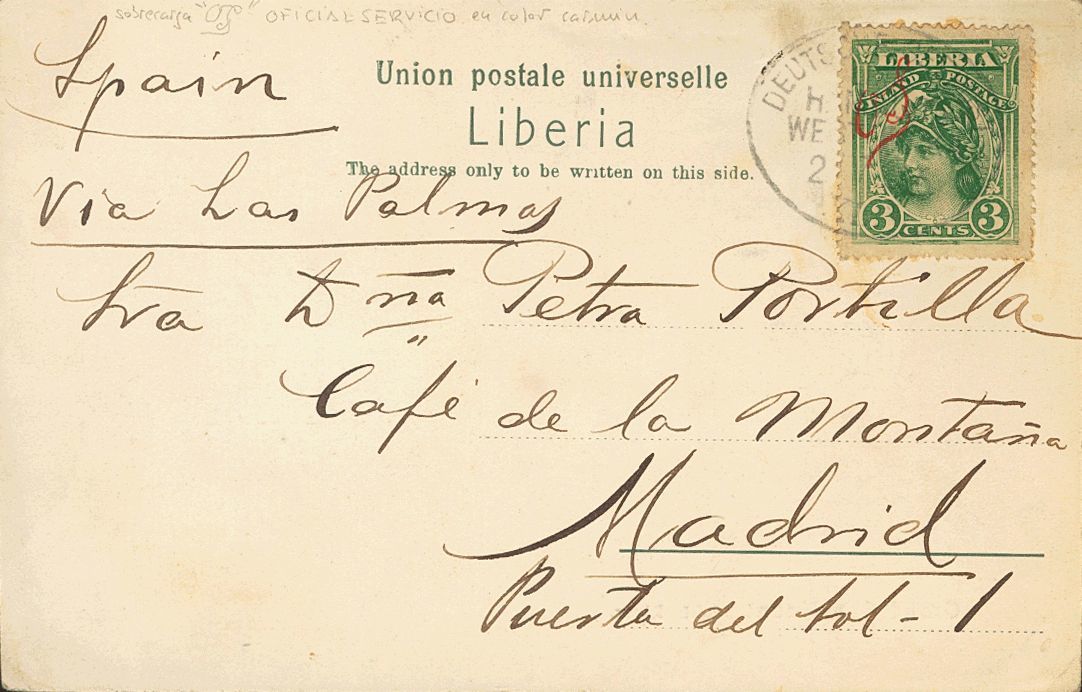 sobrecarga "OS" OFICIAL SERVICIO en color carmin.
Spain
Union postale universelle
Liberia
The address only to be written on this side.
Via Las Palmas
LIBERIA
INLAND POSTAGE
3 CENTS 3
DEUTS
WE
2
Sra Dña Petra Portilla
Café de la Montaña
Madrid
Puerta del Sol - 1